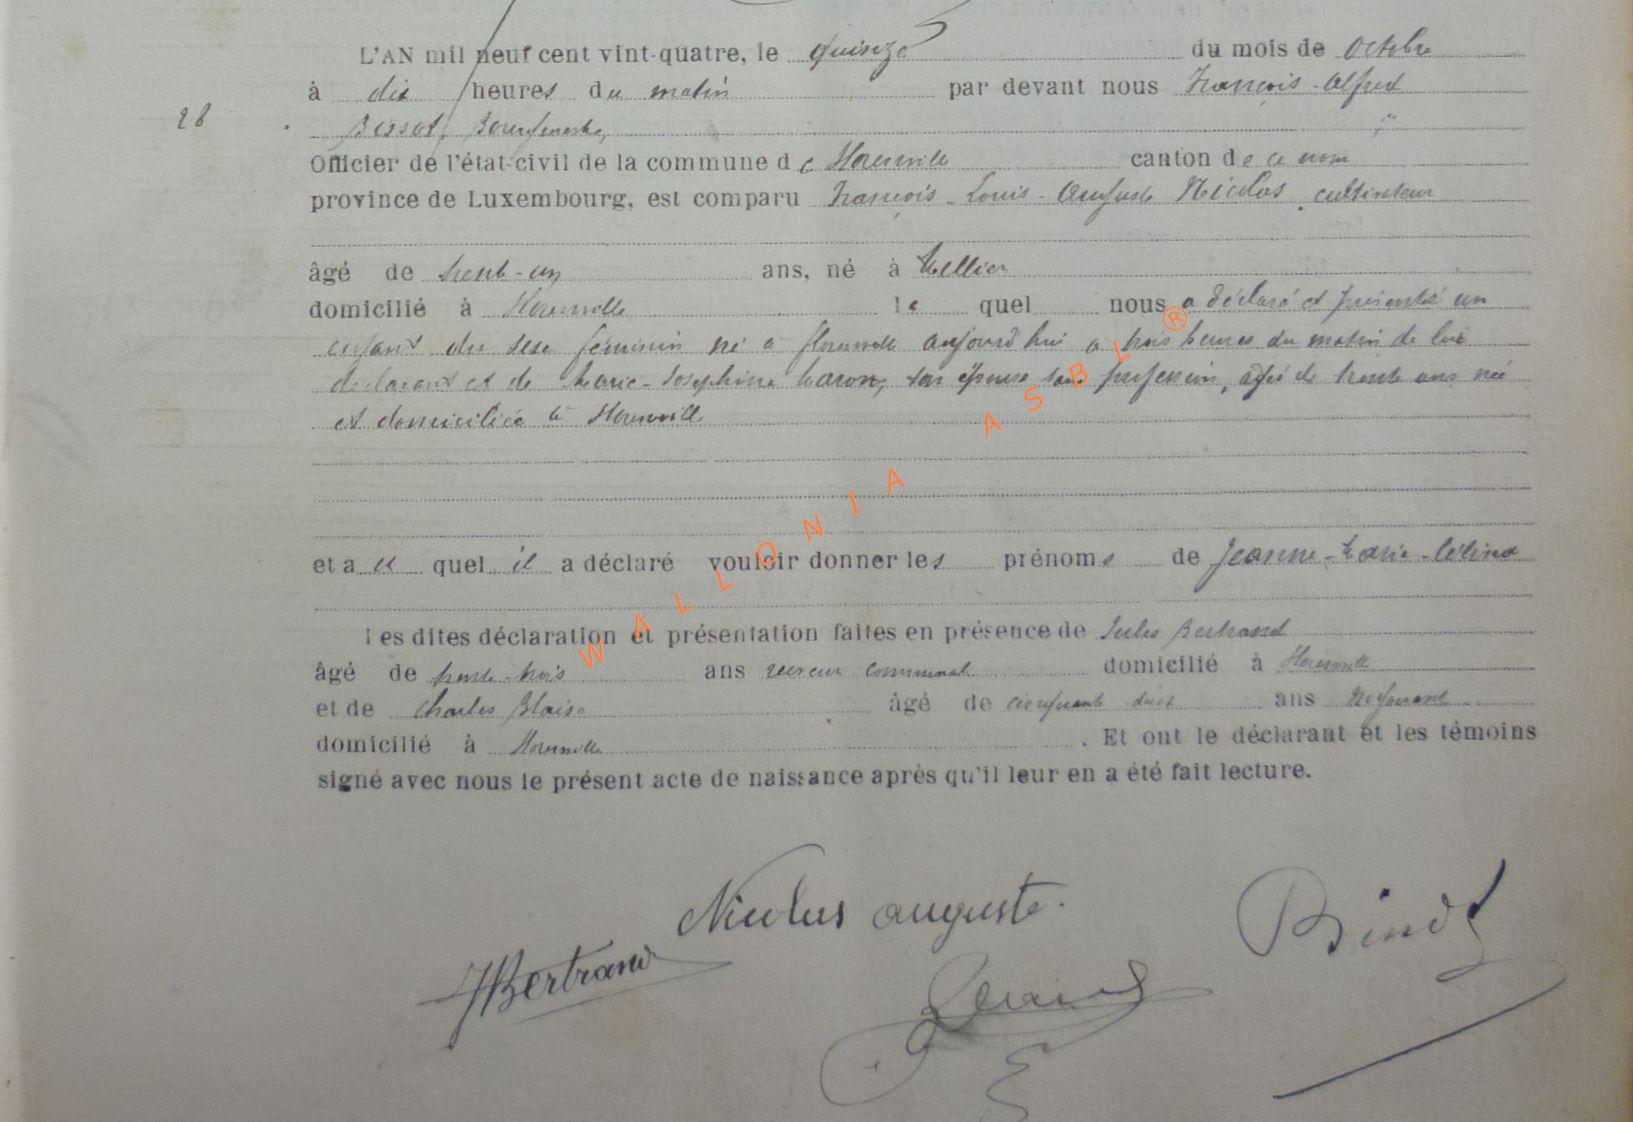 L'AN mil neuf cent vint-quatre, le quinze du mois de Octobre
à dix heures du matin par devant nous François-Alfred
28 Bourgmestre,
Officier de l'état-civil de la commune de Florenville canton de ce nom
province de Luxembourg, est comparu François-Louis-Auguste Nicolas, cultivateur
âgé de trente-un ans, né à Mellier
domicilié à Florenville lequel nous a déclaré et présenté un
enfant du sexe féminin né à Florenville aujourd'hui à trois heures du matin de lui
déclarant et de Marie-Josephine son épouse sans profession, agée de trente ans née
et domiciliée à Florenville
et auquel il a déclaré vouloir donner les prénoms de Jeanne-Marie-Célina
Les dites déclaration et présentation faites en présence de Jules Bertrand
âgé de trente-trois ans receveur communal domicilié à Florenville
et de Charles Blaise âgé de cinquante deux ans Négociant
domicilié à Florenville. Et ont le déclarant et les témoins
signé avec nous le présent acte de naissance après qu'il leur en a été fait lecture.
Nicolas auguste.
JBertrand
WALLONIA ASBL ®